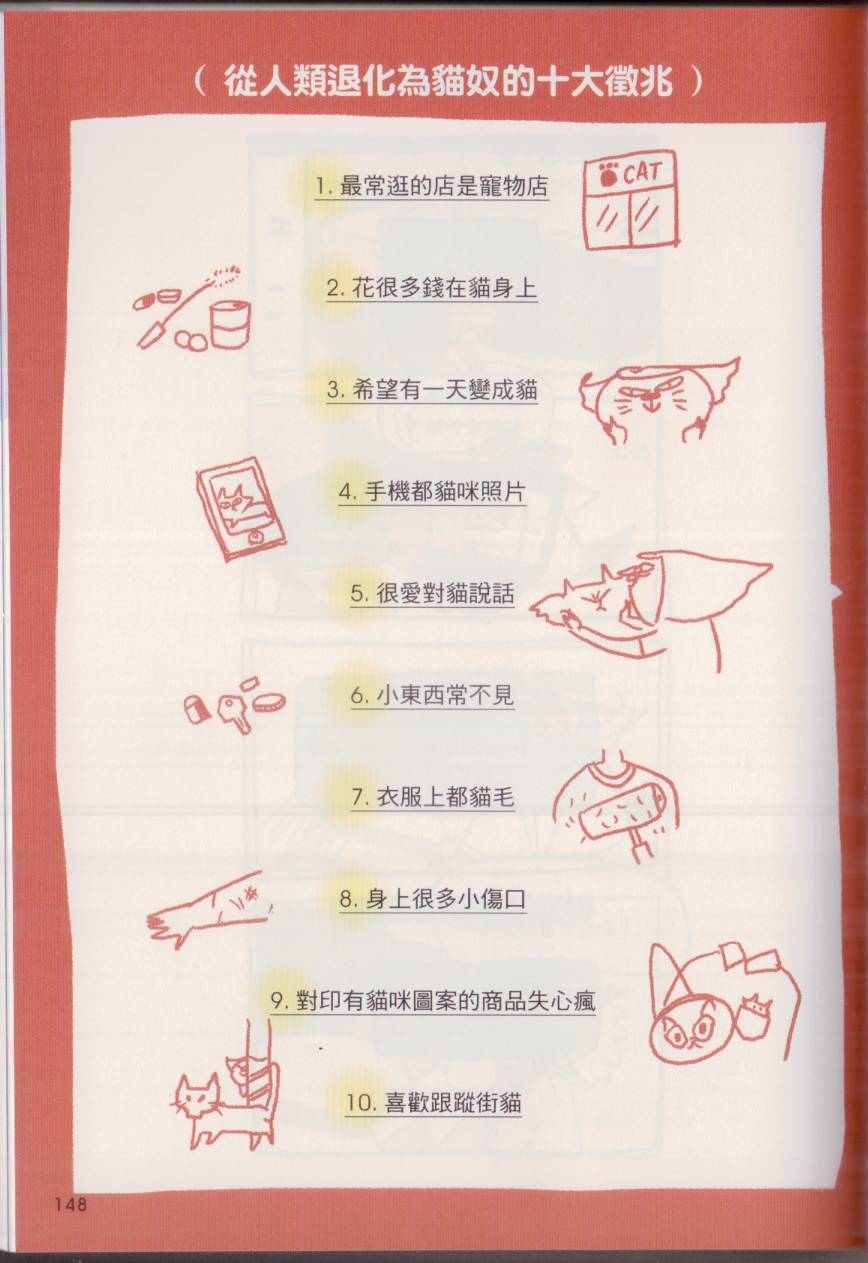 ( 從人類退化為貓奴的十大徵兆 )
1. 最常逛的店是寵物店
CAT
2. 花很多錢在貓身上
3. 希望有一天變成貓
4. 手機都貓咪照片
5. 很愛對貓說話
6. 小東西常不見
7. 衣服上都貓毛
8. 身上很多小傷口
9. 對印有貓咪圖案的商品失心瘋
10. 喜歡跟蹤街貓
148